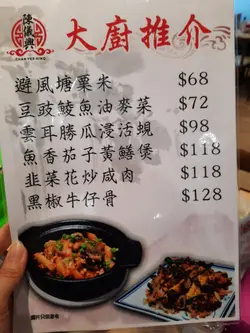 大廚推介
避風塘粟米 $68
豆豉鯪魚油麥菜 $72
雲耳勝瓜浸活蜆 $98
魚香茄子黃鱔煲 $118
韭菜花炒咸肉 $118
黑椒牛仔骨 $128
圖片只供參考